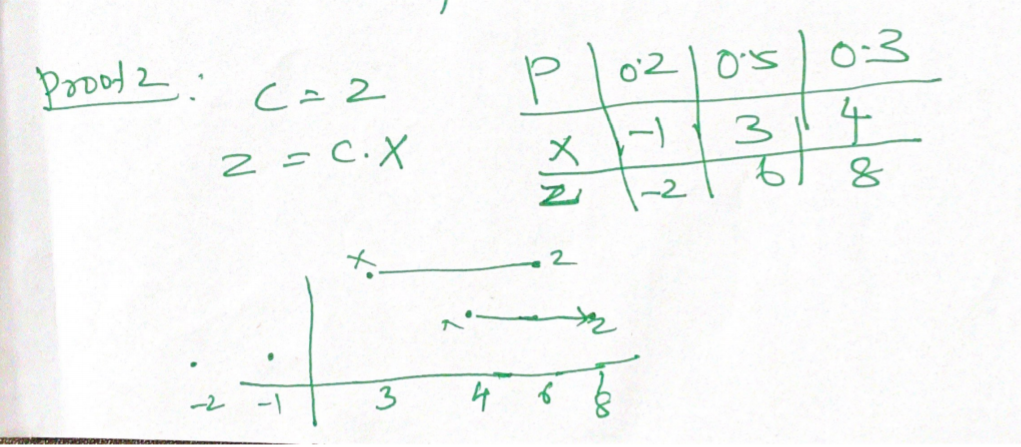 Proof 2 : C = 2
z = C.X
P | 0.2 | 0.5 | 0.3
X | -1 | 3 | 4
Z | -2 | 6 | 8
x z
x z
-2 -1 3 4 6 8